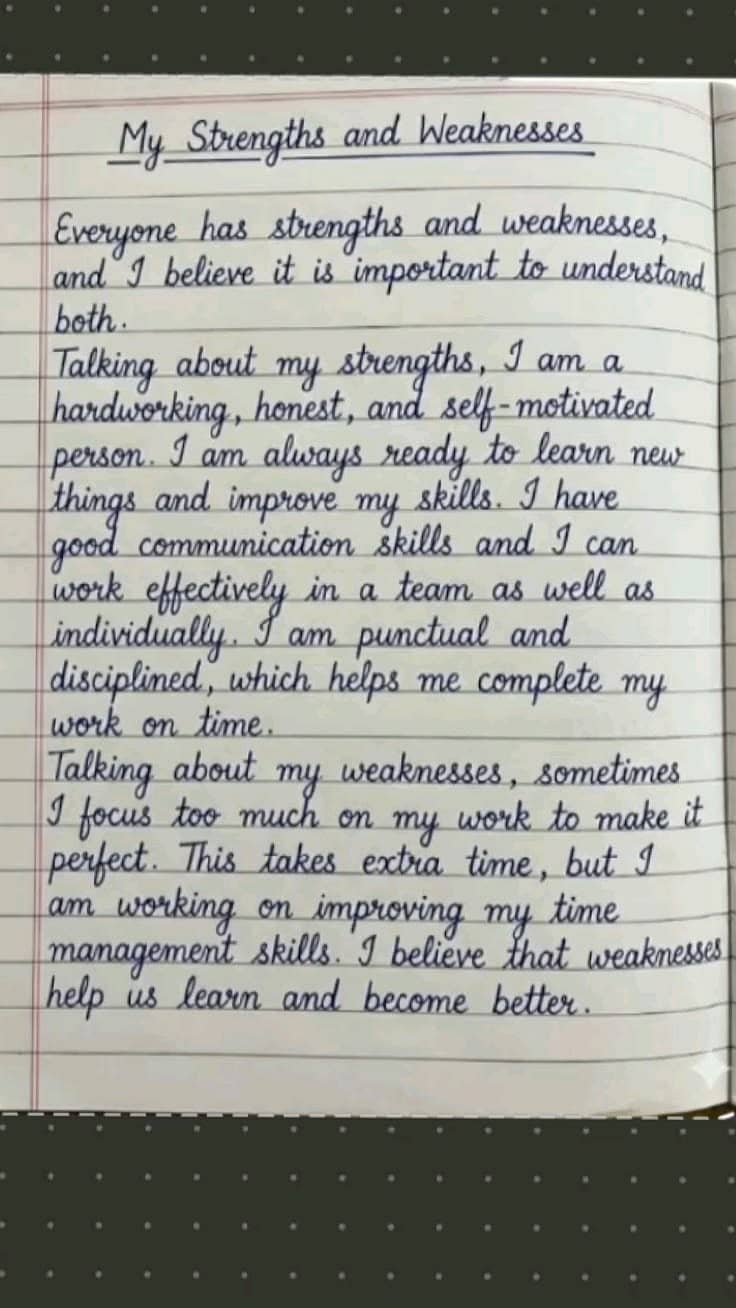 My Strengths and Weaknesses
Everyone has strengths and weaknesses,
and I believe it is important to understand
both.
Talking about my strengths, I am a
hardworking, honest, and self-motivated
person. I am always ready to learn new
things and improve my skills. I have
good communication skills and I can
work effectively in a team as well as
individually. I am punctual and
disciplined, which helps me complete my
work on time.
Talking about my weaknesses, sometimes
I focus too much on my work to make it
perfect. This takes extra time, but I
am working on improving my time
management skills. I believe that weaknesses
help us learn and become better.